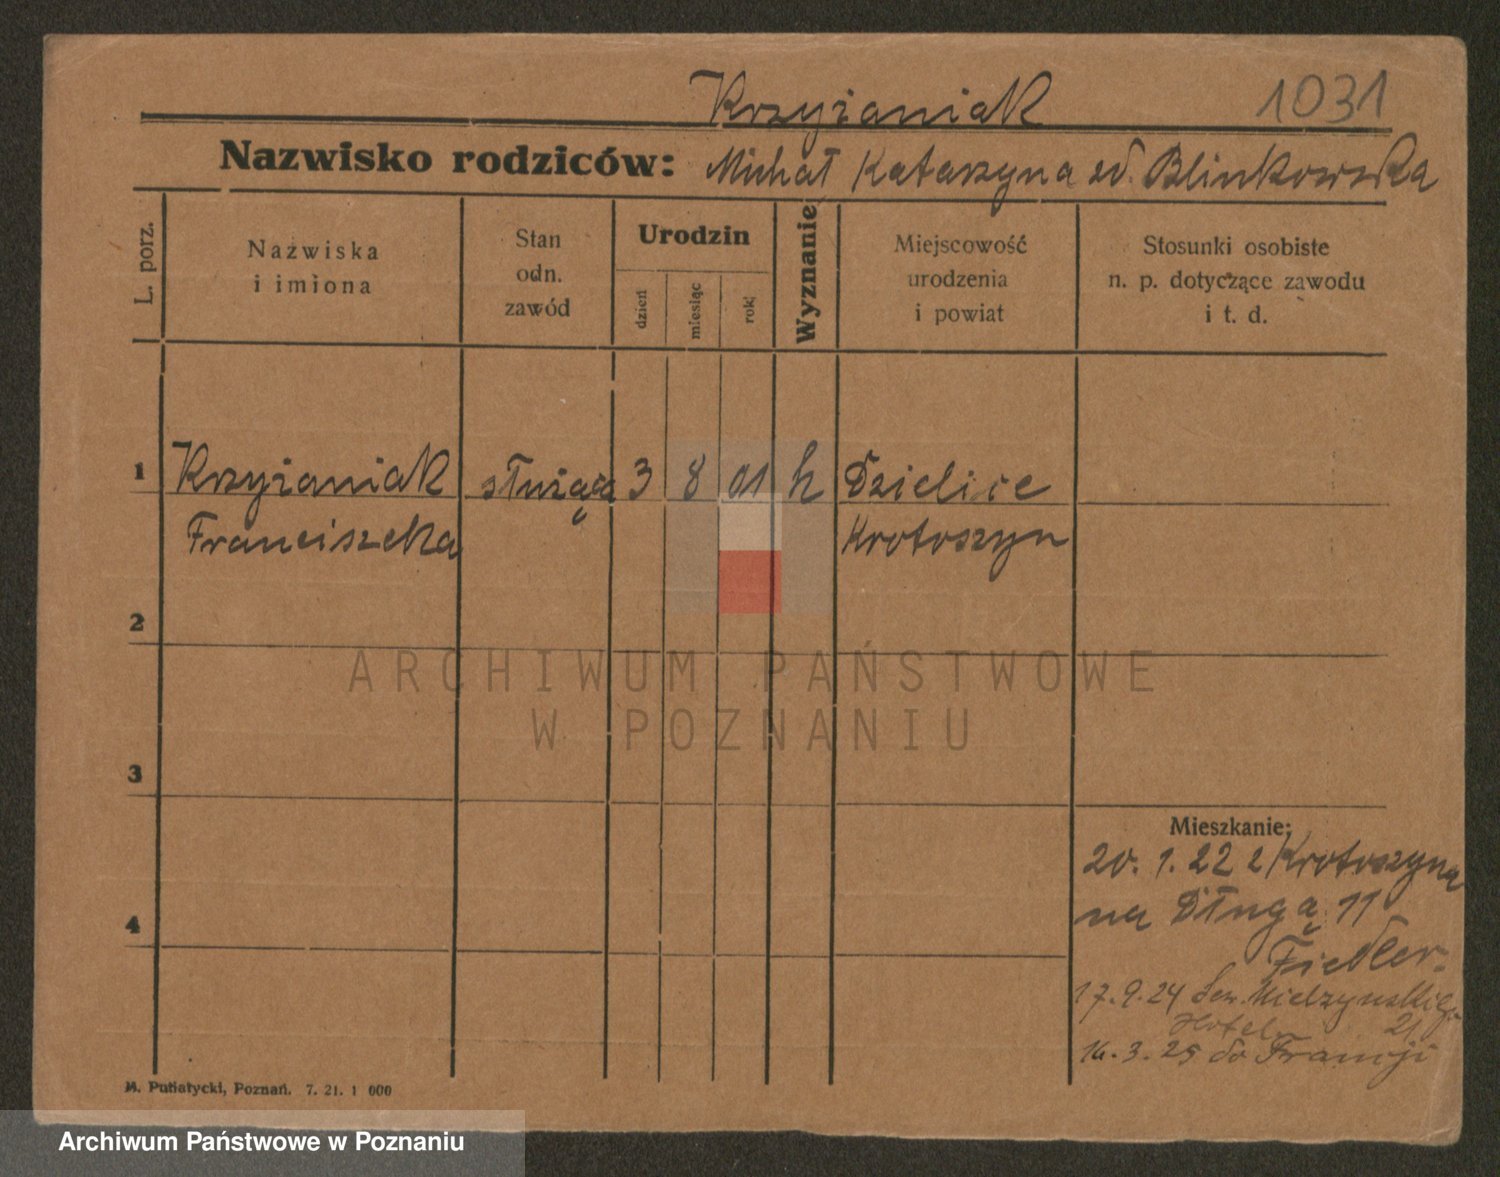 Krzyżaniak 1031
Nazwisko rodziców: Michał Katarzyna zd. Blinkowska
L. porz.
Nazwiska
i imiona
Stan
odn.
zawód
Urodzin
dzień
miesiąc
rok
Wyznanie
Miejscowość
urodzenia
i powiat
Stosunki osobiste
n. p. dotyczące zawodu
i t. d.
1 Krzyżaniak służąca 3 8 01 k Dzielice
Franciszka Krotoszyn
2
ARCHIWUM PAŃSTWOWE
W POZNANIU
3
Mieszkanie:
20. 1. 22 z Krotoszyna
na Długą 11
4
Fiedler.
17. 9. 24 Sew. Mielżyńskiego
Hotel 21
16. 3. 25 do Francji
M. Putiatycki, Poznań. 7. 21. 1 000
Archiwum Państwowe w Poznaniu